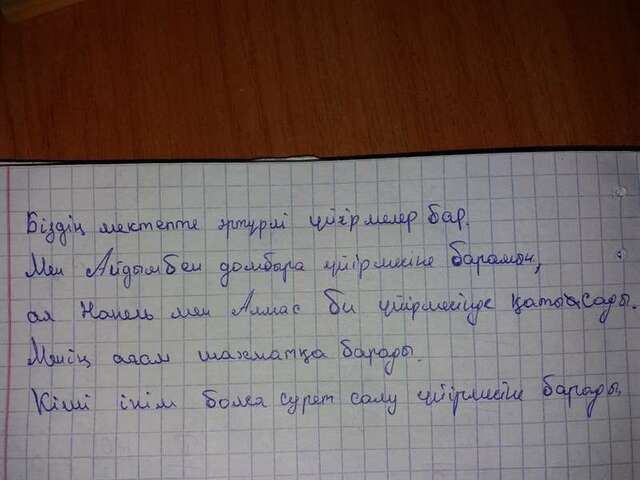 Біздің мектепте әртүрлі үйірмелер бар.
Мен Айдынмен домбыра үйірмесіне барамын,
ал Нәмель мен Алмас би үйірмесіне қатысады.
Менің ағам шахматқа барады.
Кіші інім болса сурет салу үйірмесіне барады.